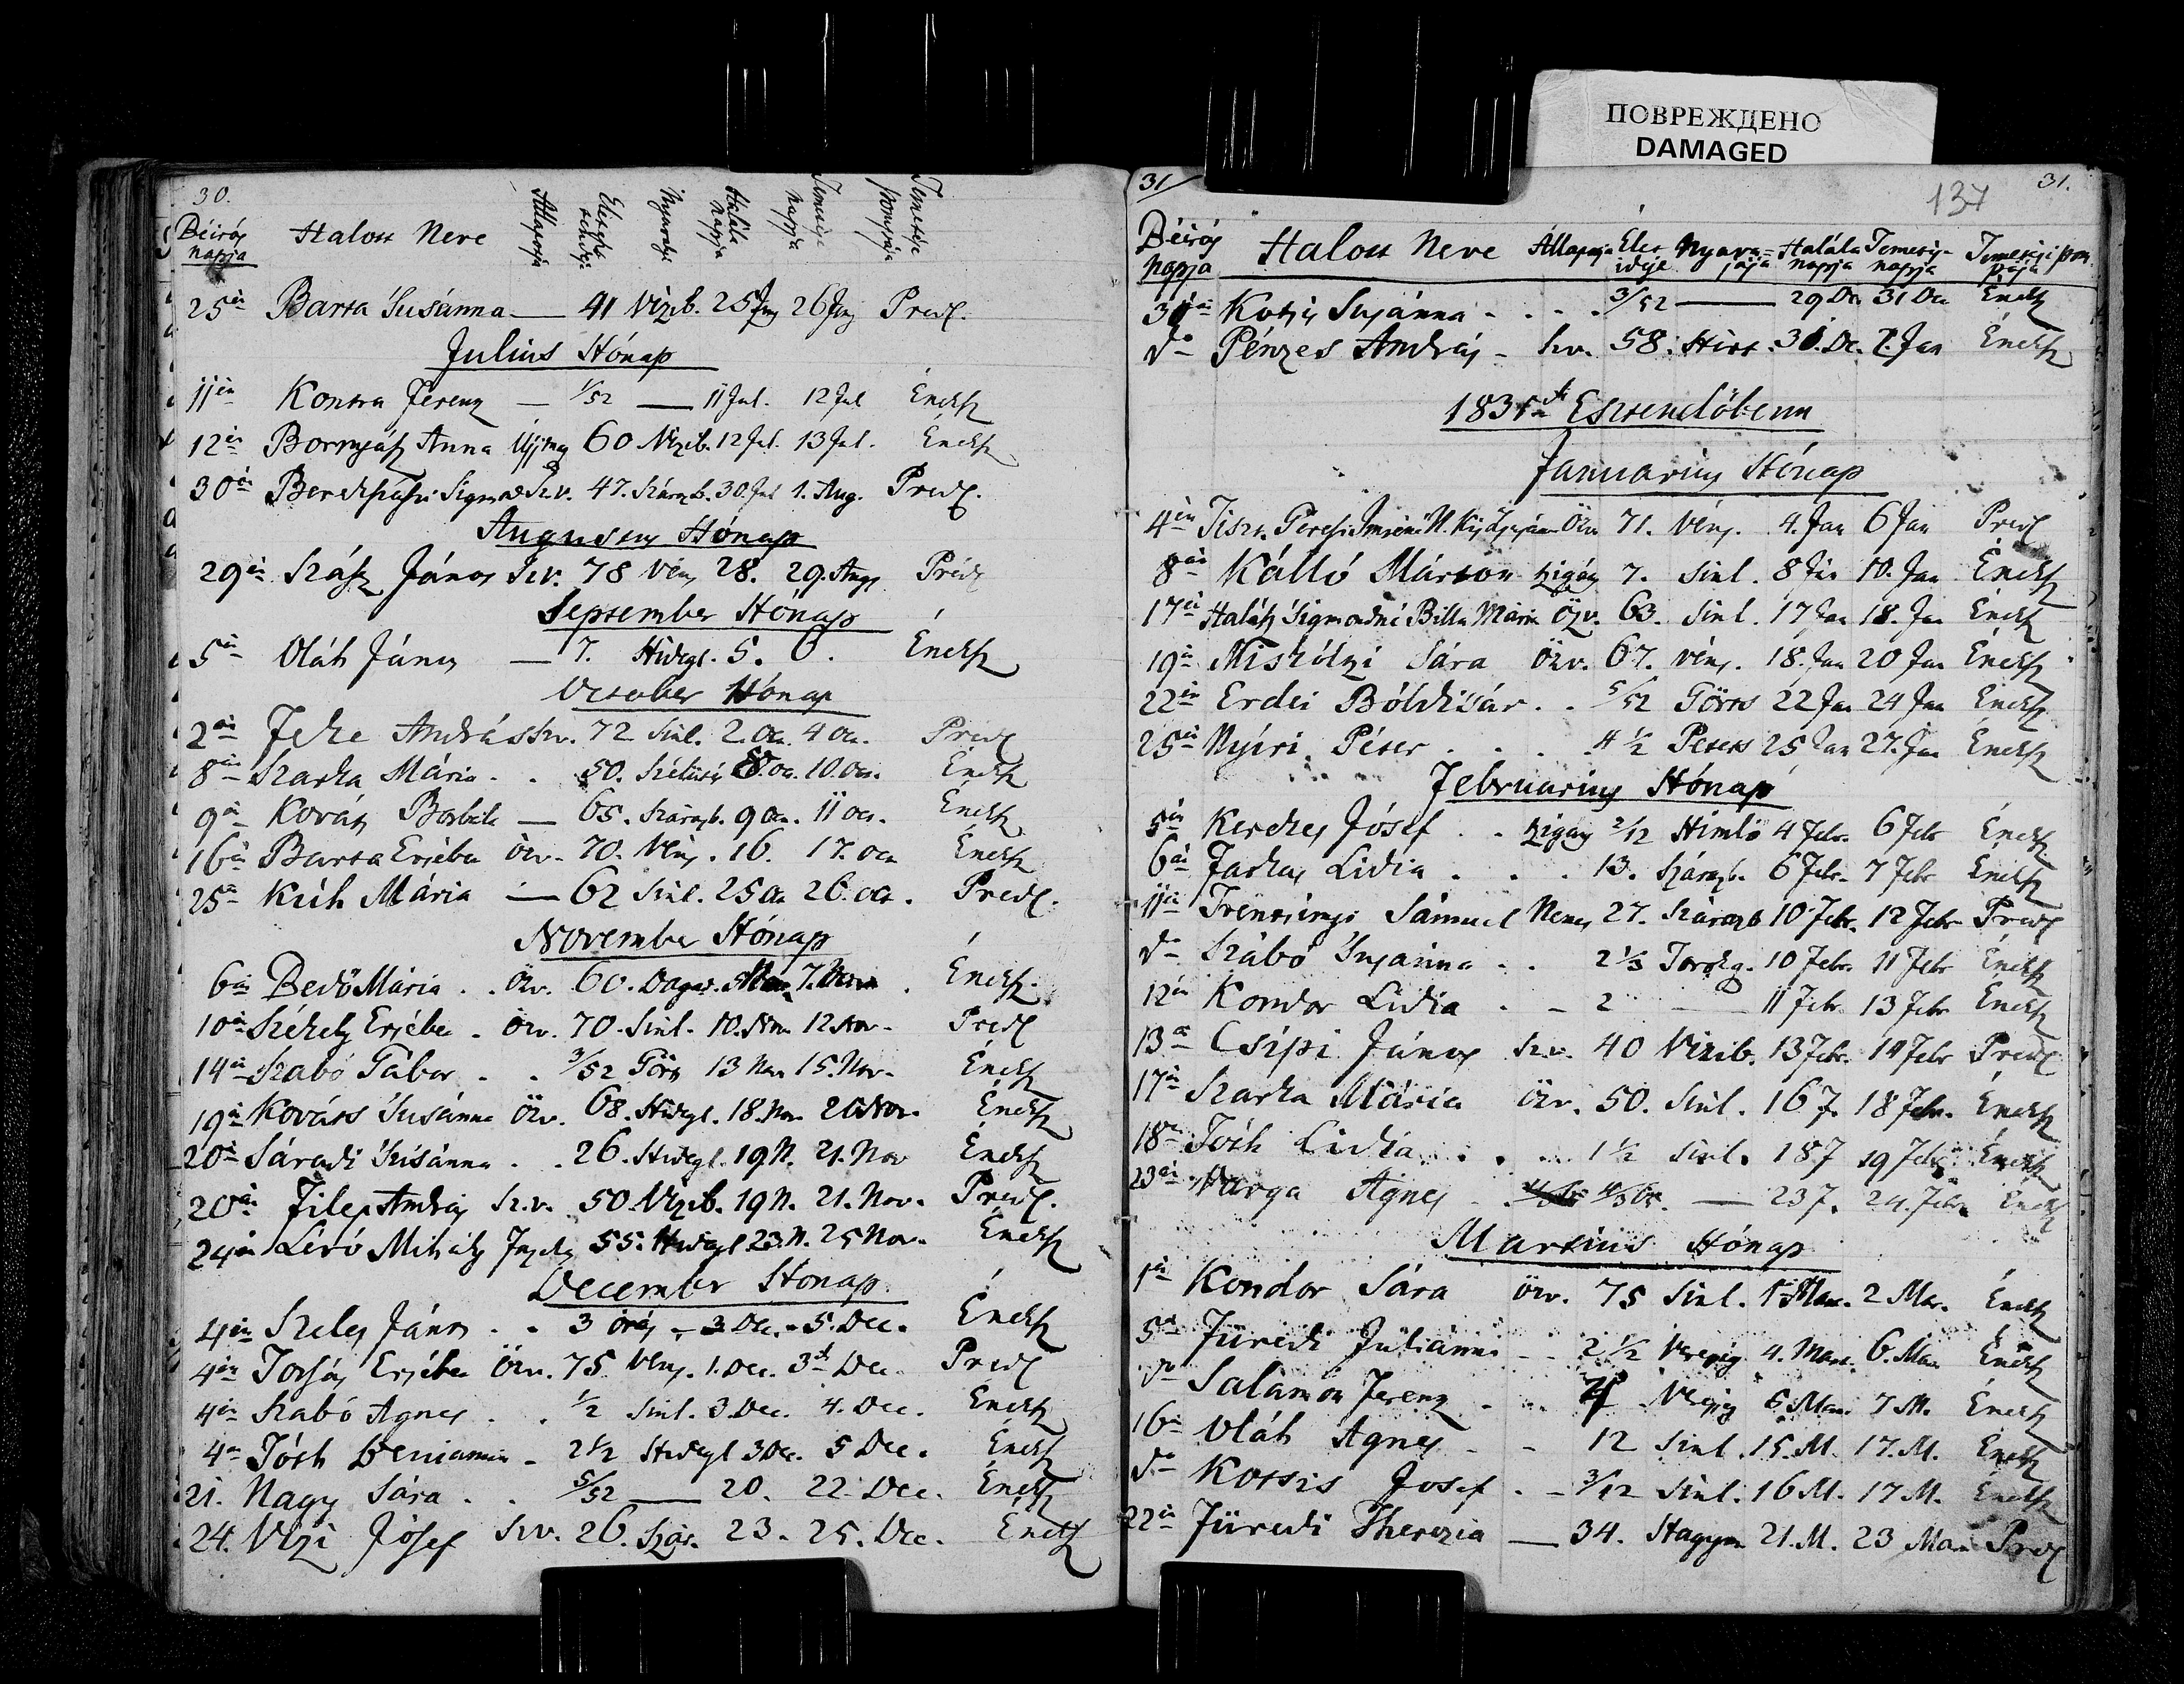 ПОВРЕЖДЕНО
DAMAGED
30.
Béirás napja Halott Neve Állapotja Életének ideje Nyavalyája Halála napja Temetése napja Temetése pompája
25én Barta Susánna — 41 Vizib. 25 Jun 26 Jun Pred.
Julius Hónap
11én Kontra Ferenz — 1/52 — 11 Jul. 12 Jul Énekk
12én Bornyász Anna 60 Vizib. 12 Jul. 13 Jul. Énekk
30án Sigmond Sz.v. 47. Szárazb. 30. Jul 1. Aug. Pred.
Augustus Hónap
29én Szász János Sz.v. 78 Vény 28. 29. Aug. Pred
September Hónap
5én Oláh János — 7. Hidegl. 5. 6. Énekk
October Hónap
2án Feke András Sz.v. 72 Sinl. 2. Oct. 4 Oct. Pred
8án Szarka Mária . . 50. Szélütés 8. Oct. 10. Oct. Énekk
9én Kováts Borbála — 65. Szárazb. 9 Oct. 11 Oct. Énekk
16án Barta Ersébet Özv. 70. Vény. 16. 17. Oct Énekk
25én Kúh Mária — 62 Sinl. 25 Oct 26. Oct. Pred.
November Hónap
6án Bedő Mária . . Özv. 60. Dagad. 7. Nov. Énekk.
10én Székely Ersébet . Özv. 70. Sinl. 10. Nov. 12 Nov. Pred
14én Szabó Gábor . . 3/52 Görts 13 Nov 15. Nov. Énekk
19én Kováts Susánna Özv. 68. Hidegl. 18. Nov. 20 Nov. Énekk
20án Sáradi Susánna . . 26. Hidegl. 19 N. 21. Nov Énekk
20án Filep András Sz.v. 50. Vizib. 19 N. 21. Nov. Pred.
24én Mihály 55. Hidegl 23. N. 25 Nov. Énekk
December Hónap
4én Szeles János . . 3 órás - 3 Dec. - 5. Dec. Énekk
4én Ersébet Özv. 75. Vény. 1. Dec. 3d Dec Pred
4én Szabó Agnes . . 1/2 Sinl. 3. Dec. 4. Dec. Énekk
4én Tóth Beniamin - 2 1/2 Hidegl 3 Dec. 5 Dec. Énekk
21. Nagy Sára . . 5/52 — 20. 22. Dec. Énekk
24. Vizi Jósef Sz.v. 26. Szár. 23. 25. Dec. Énekk
31/ 137 31.
Béirás napja Halott Neve Állapotja Élet ideje Nyavalyája Halála napja Temetése napja Temetési pompája
Kotsis Susánna - . . . 3/52 — 29 Dec 31 Dec Énekk
do Pénzes András - Sz.v. 58. Hirt. 31. Dec. 2. Jan Énekk
1831dik Esztendőbenn
Januarius Hónap
4én Özv. 71. Vény. 4. Jan 6 Jan Pred
8án Kálló Márton Szigány 7. Sinl. 8 Jan 10. Jan Énekk
17én Halász Sigmondné Billa Mária Özv. 63. Sinl. 17 Jan 18. Jan Énekk
19én Miskólzi Sára Özv. 67. Vény. 18. Jan 20 Jan Énekk
22én Erdei Bóldisár . . 5/52 Görts 22 Jan 24 Jan Énekk
25én Nyíri Péter . . . 4 1/2 Petets 25 Jan 27. Jan Énekk
Februarius Hónap
5én Kerekes Jósef . . Szigány 2/12 Himlő 4 Febr. 6 Febr Énekk
6án Farkas Lidia . . . 13. Szárazb. 6 Febr. 7 Febr Énekk
11én Trentsényi Sámuel Nemes 27. Szárazb 10 Febr. 12 Febr Pred
do Szabó Susánna . . 2 1/3 Torokg. 10 Febr. 11 Febr Énekk
12én Kondor Lidia . - 2 — 11 Febr 13 Febr Énekk
13án Csípi János Sz.v. 40 Vizib. 13 Febr. 14 Febr Pred
17én Szarka Mária Özv. 50. Sinl. 16 F. 18 Febr. Énekk
18án Tóth Lidia . . . 1 1/2 Sinl. 18 F 19 Febr. Énekk
23án Varga Agnes . — 23 F. 24. Febr. Énekk
Martius Hónap
1én Kondor Sára Özv. 75 Sinl. 1 Mar. 2 Mar. Énekk
5én Füredi Juliánna - - 2 1/2 4. Mart. 6. Mar Énekk
do Salamon Ferenz . . 4 5 Mar 7 M. Énekk
16án Oláh Agnes - - 12 Sinl. 15. M. 17. M. Énekk
do Kotsis Josef . - 3/12 Sinl. 16 M. 17 M. Énekk
22én Füredi Therezia — 34. Hagym 21. M. 23 Mar Pred